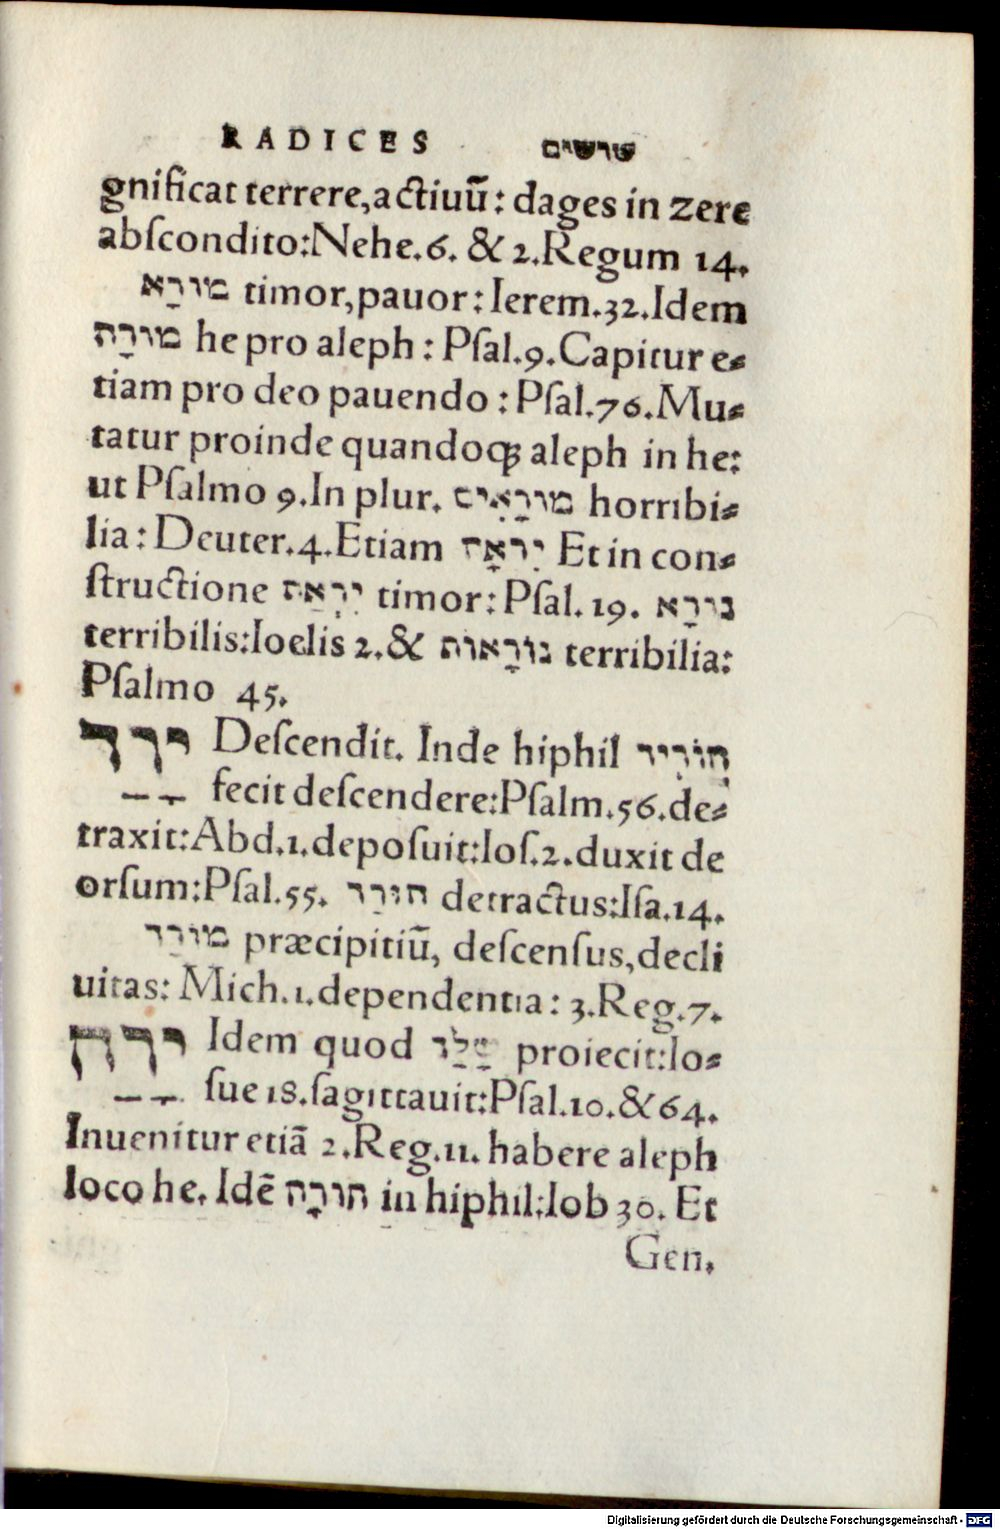 RADICES שרשים
gnificat terrere,actiuū: dages in zere
abſcondito:Nehe.6. & 2.Regum 14.
מוֹרָא timor,pauor: Ierem.32.Idem
מוֹרָה he pro aleph: Pſal.9.Capitur e⸗
tiam pro deo pauendo: Pſal.76.Mu⸗
tatur proinde quandoqꝫ aleph in he:
ut Pſalmo 9.In plur. מוֹרָאִים horribi⸗
lia: Deuter.4.Etiam יִרְאָה Et in con⸗
ſtructione יִרְאַת timor: Pſal. 19. נוֹרָא
terribilis:Ioelis 2.& נוֹרָאוֹת terribilia:
Pſalmo 45.
יָרַד Deſcendit. Inde hiphil הוֹרִיד
fecit deſcendere:Pſalm.56.de⸗
traxit:Abd.1.depoſuit:Ioſ.2.duxit de
orſum:Pſal.55. הוּרַד detractus:Iſa.14.
מוֹרַד præcipitiū, deſcenſus,decli
uitas: Mich.1.dependentia: 3.Reg.7.
Idem quod proiecit:Io⸗
ſue 18.ſagittauit:Pſal.10.&64.
Inuenitur etiā 2.Reg.11. habere aleph
loco he. Idē הוֹרָה in hiphil:Iob 30. Et
Gen.
Digitalisierung gefördert durch die Deutsche Forschungsgemeinschaft - DFG